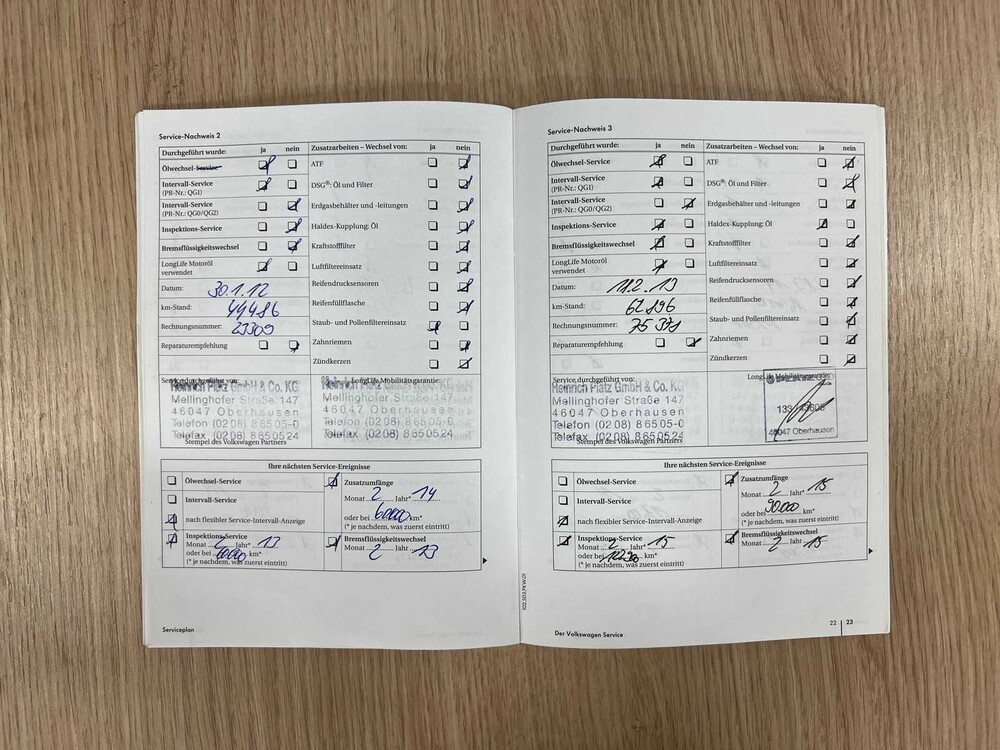 Service-Nachweis 2
Durchgeführt wurde: ja nein
Ölwechsel-Service
Intervall-Service
(PR-Nr.: QG1)
Intervall-Service
(PR-Nr.: QG0/QG2)
Inspektions-Service
Bremsflüssigkeitswechsel
LongLife Motoröl
verwendet
Datum: 30.1.12
km-Stand: 44486
Rechnungsnummer: 23309
Reparaturempfehlung
Zusatzarbeiten – Wechsel von: ja nein
ATF
DSG®: Öl und Filter
Erdgasbehälter und -leitungen
Haldex-Kupplung: Öl
Kraftstofffilter
Luftfiltereinsatz
Reifendrucksensoren
Reifenfüllflasche
Staub- und Pollenfiltereinsatz
Zahnriemen
Zündkerzen
Service durchgeführt von:
Heinrich Platz GmbH & Co. KG
Mellinghofer Straße 147
46047 Oberhausen
Telefon (0208) 86505-0
Telefax (0208) 8650524
Stempel des Volkswagen Partners
LongLife Mobilitätsgarantie:
Heinrich Platz GmbH & Co. KG
Mellinghofer Straße 147
46047 Oberhausen
Telefon (0208) 86505-0
Telefax (0208) 8650524
Ihre nächsten Service-Ereignisse
Ölwechsel-Service
Intervall-Service
nach flexibler Service-Intervall-Anzeige
Inspektions-Service
Monat 2 Jahr* 13
oder bei km*
(* je nachdem, was zuerst eintritt)
Zusatzumfänge
Monat 2 Jahr* 14
oder bei 60000 km*
(* je nachdem, was zuerst eintritt)
Bremsflüssigkeitswechsel
Monat 2 Jahr 13
Serviceplan
Service-Nachweis 3
Durchgeführt wurde: ja nein
Ölwechsel-Service
Intervall-Service
(PR-Nr.: QG1)
Intervall-Service
(PR-Nr.: QG0/QG2)
Inspektions-Service
Bremsflüssigkeitswechsel
LongLife Motoröl
verwendet
Datum: 11.2.13
km-Stand: 67896
Rechnungsnummer:
Reparaturempfehlung
Zusatzarbeiten – Wechsel von: ja nein
ATF
DSG®: Öl und Filter
Erdgasbehälter und -leitungen
Haldex-Kupplung: Öl
Kraftstofffilter
Luftfiltereinsatz
Reifendrucksensoren
Reifenfüllflasche
Staub- und Pollenfiltereinsatz
Zahnriemen
Zündkerzen
Service durchgeführt von:
Heinrich Platz GmbH & Co. KG
Mellinghofer Straße 147
46047 Oberhausen
Telefon (0208) 86505-0
Telefax (0208) 8650524
Stempel des Volkswagen Partners
LongLife Mobilitätsgarantie:
46047 Oberhausen
Ihre nächsten Service-Ereignisse
Ölwechsel-Service
Intervall-Service
nach flexibler Service-Intervall-Anzeige
Inspektions-Service
Monat 2 Jahr* 15
oder bei km*
(* je nachdem, was zuerst eintritt)
Zusatzumfänge
Monat 2 Jahr* 15
oder bei 90000 km*
(* je nachdem, was zuerst eintritt)
Bremsflüssigkeitswechsel
Monat 2 Jahr 15
Der Volkswagen Service
22 23